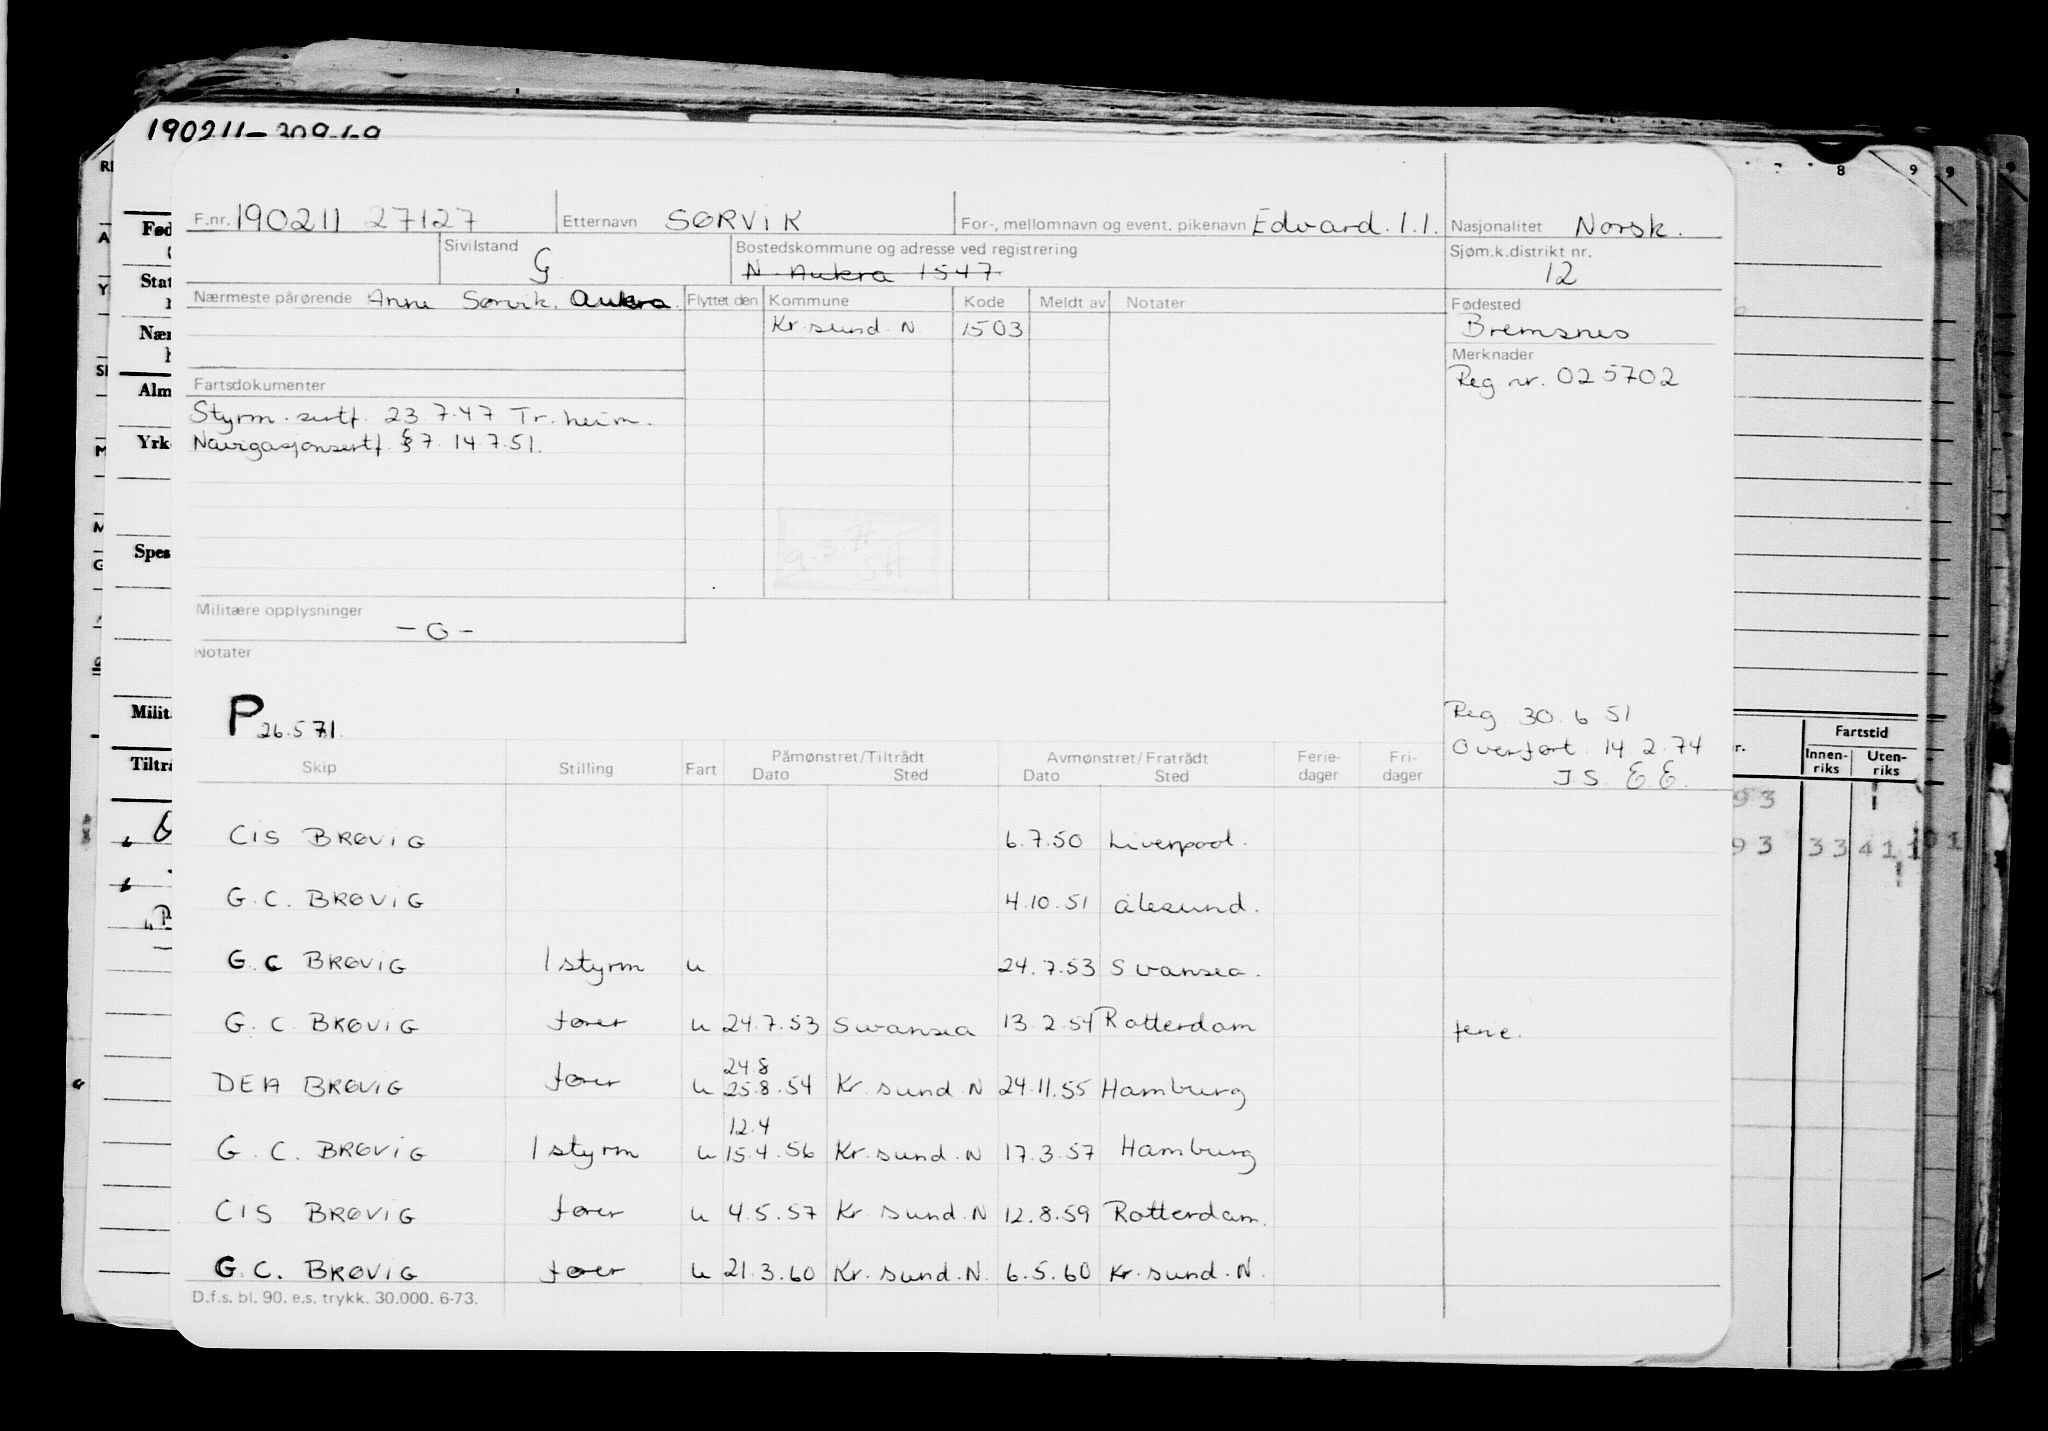 190211-
F.nr. 190211 27127 Etternavn SØRVIK For-, mellomnavn og event. pikenavn Edvard. I.I. Nasjonalitet Norsk.
Sivilstand G Bostedskommune og adresse ved registrering N. Aukra 1547 Sjøm.k.distrikt nr. 12
Nærmeste pårørende Anne Sørvik. Aukra. Flyttet den Kommune Kode Meldt av Notater Fødested
Kr.sund. N 1503 Bremsnes
Merknader
Fartsdokumenter Reg. nr. 025702
Styrm. sertf. 23.7.47 Tr.heim.
Navigasjonsertf. §7. 14.7.51.
Militære opplysninger
-o-
Notater
P 26.5.71.
Reg. 30.6.51
Overført. 14.2.74
J.S. E.E.
Skip Stilling Fart Påmønstret/Tiltrådt Avmønstret/Fratrådt Ferie- Fri-
Dato Sted Dato Sted dager dager
CIS BRØVIG 6.7.50 Liverpool.
G.C. BRØVIG 4.10.51 Ålesund.
G.C BRØVIG 1 styrm u 24.7.53 Swansea.
G.C. BRØVIG fører u 24.7.53 Swansea 13.2.54 Rotterdam ferie.
24.8
DEA BRØVIG fører u 25.8.54 Kr.sund.N 24.11.55 Hamburg
12.4
G.C. BRØVIG 1 styrm u 15.4.56 Kr.sund.N 17.3.57 Hamburg
CIS BRØVIG fører u 4.5.57 Kr.sund.N 12.8.59 Rotterdam.
G.C. BRØVIG fører u 21.3.60 Kr.sund.N. 6.5.60 Kr.sund.N.
D.f.s. bl. 90. e.s. trykk. 30.000. 6-73.
8 9 9
Fartstid
Innen-riks Uten-riks
93
93 33 41